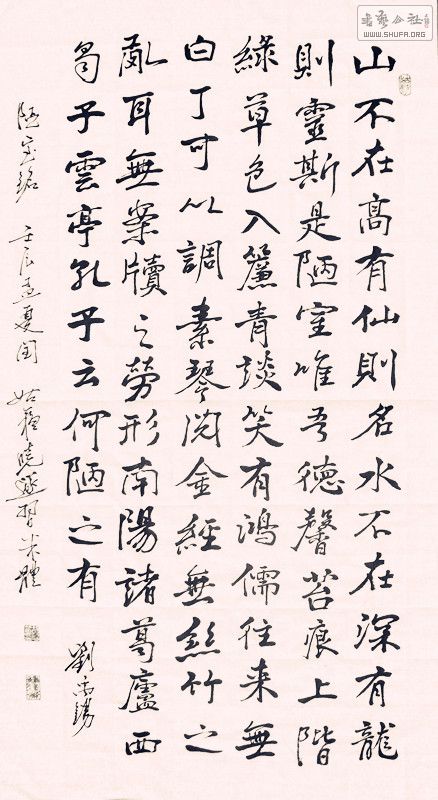 山不在高有仙則名水不在深有龍
則靈斯是陋室唯吾德馨苔痕上階
綠草色入簾青談笑有鴻儒往來無
白丁可以調素琴閱金經無絲竹之
亂耳無案牘之勞形南陽諸葛廬西
蜀子雲亭孔子云何陋之有
劉禹錫
陋室銘 壬辰孟夏閏 姑蘇曉 習米體
書藝公社
WWW.SHUFA.ORG